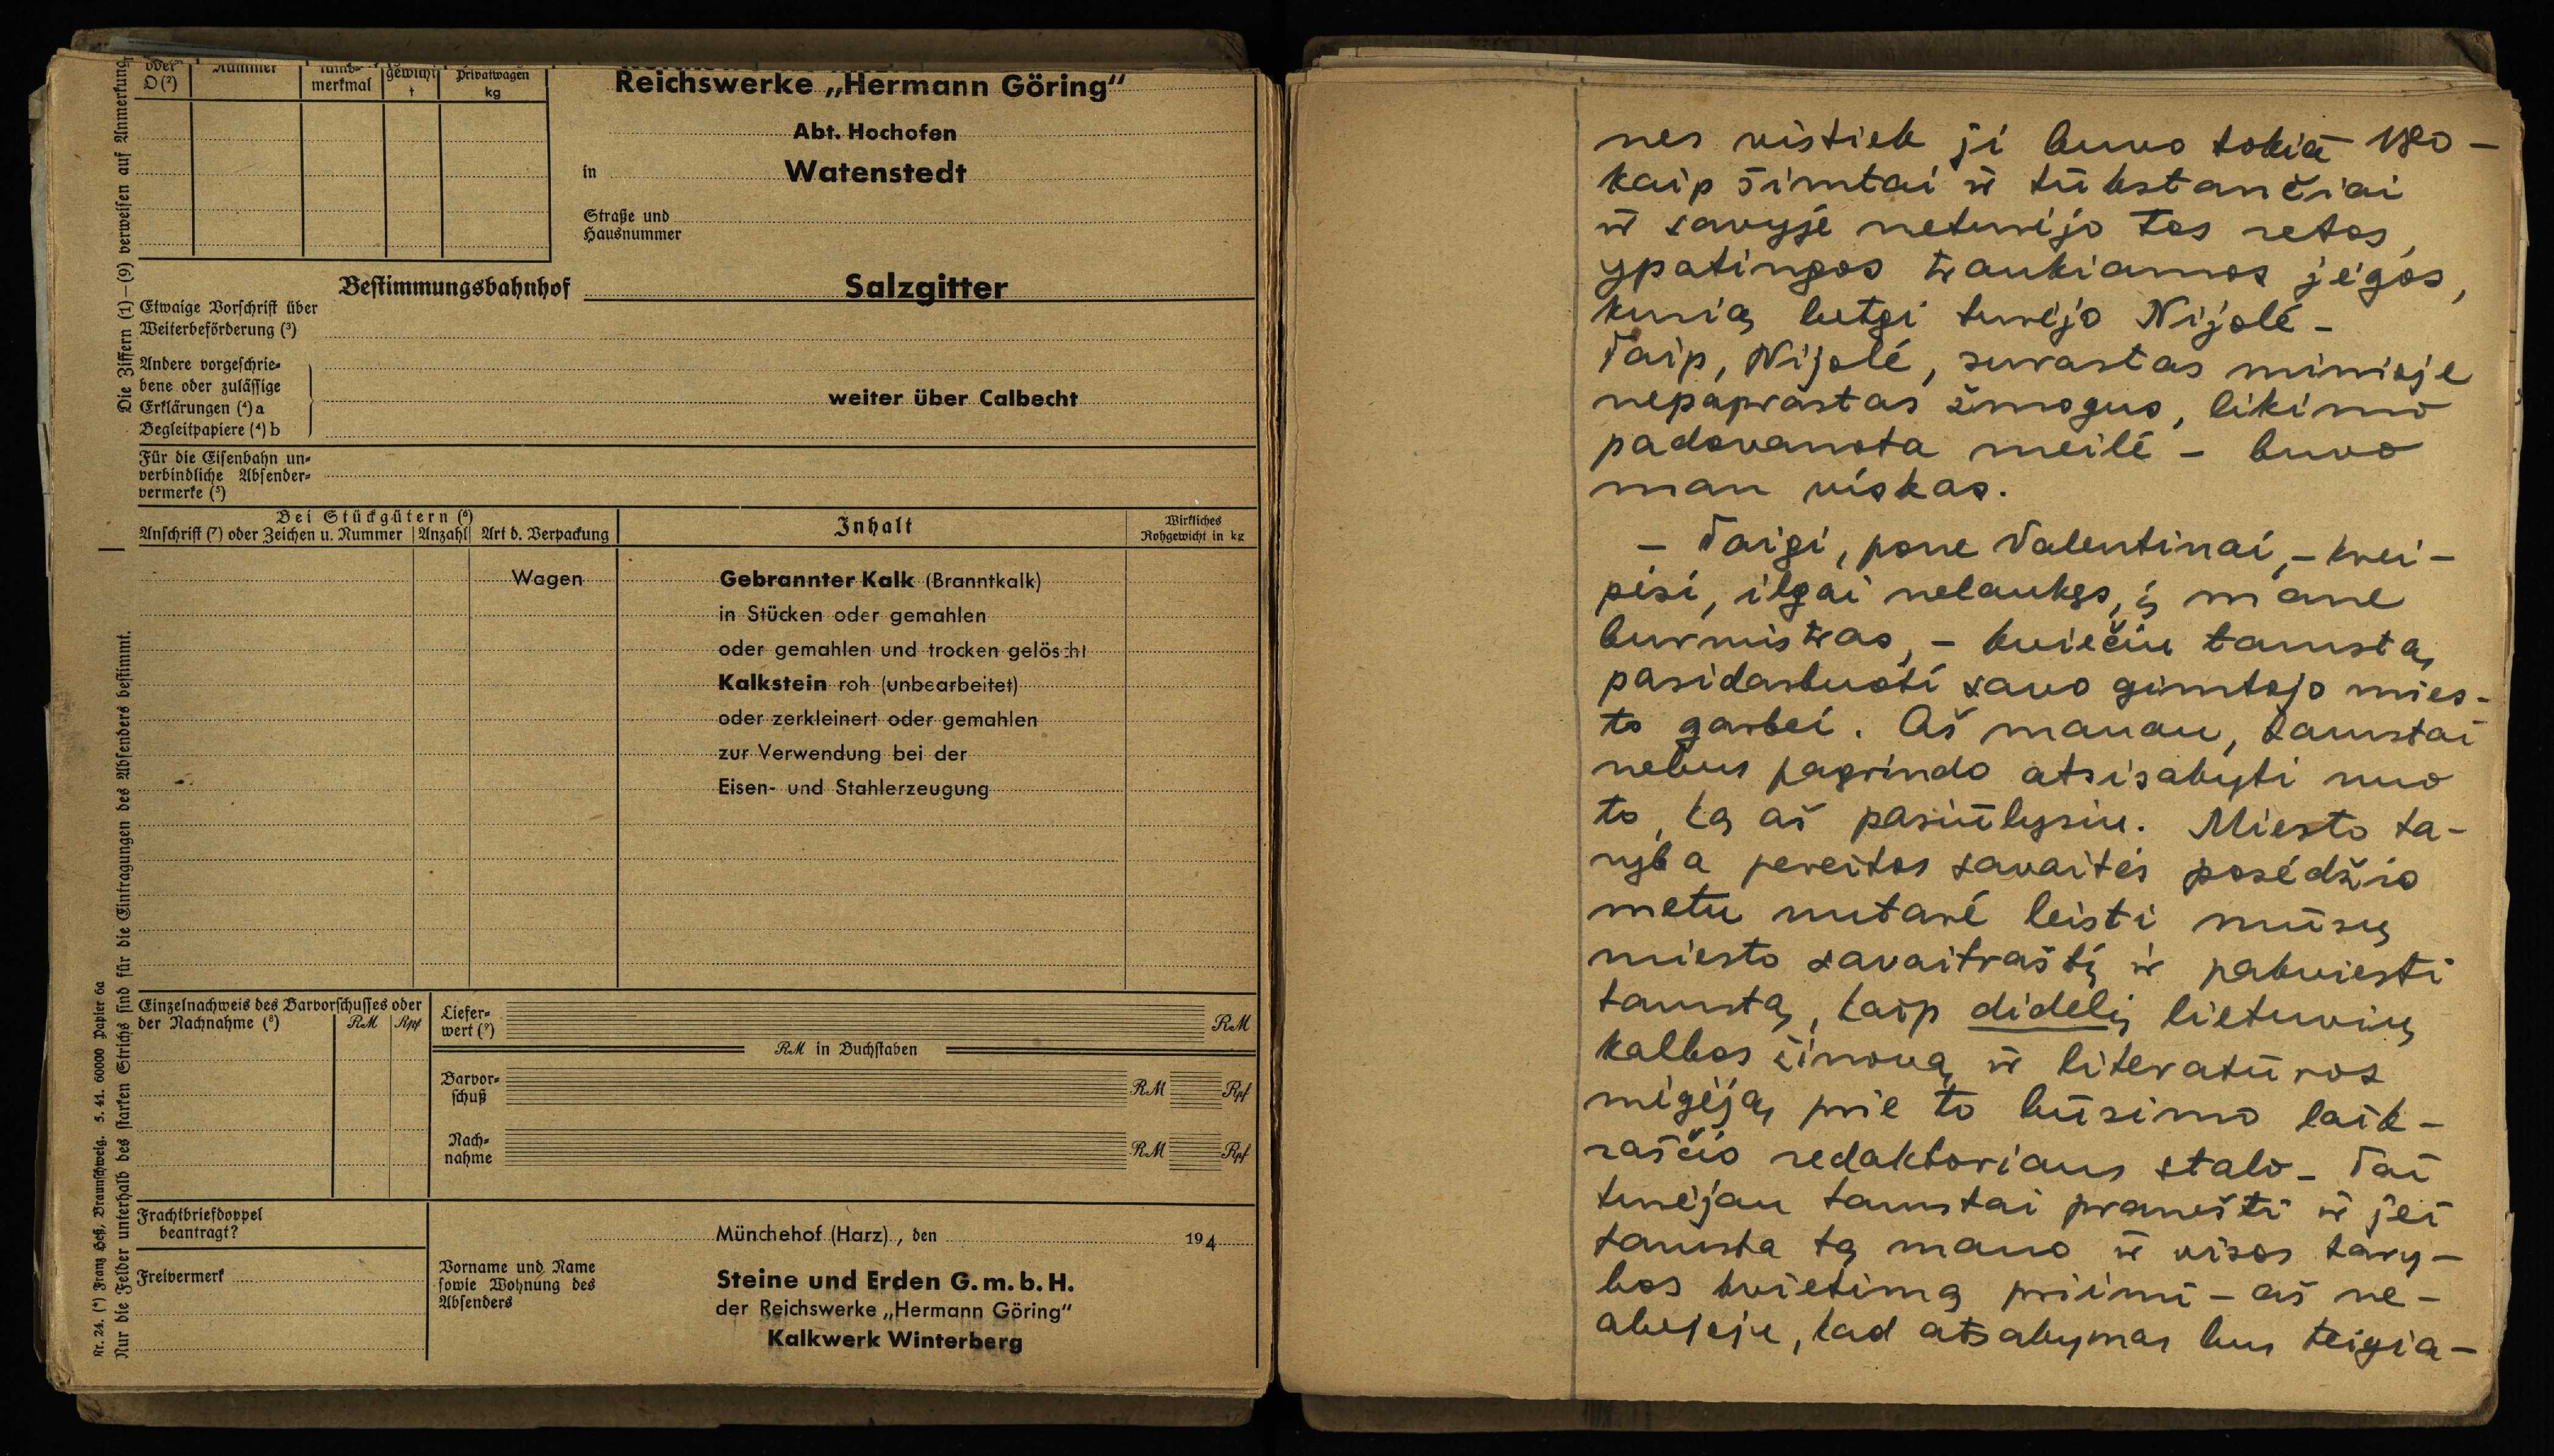 oder
D (²)
Nummer
merkmal
gewicht
t
Privatwagen
kg
Reichswerke „Hermann Göring“
Abt. Hochofen
in Watenstedt
Straße und
Hausnummer
Bestimmungsbahnhof Salzgitter
Etwaige Vorschrift über
Weiterbeförderung (³)
Andere vorgeschrie-
bene oder zulässige
Erklärungen (⁴) a
Begleitpapiere (⁴) b
weiter über Calbecht
Für die Eisenbahn un-
verbindliche Absender-
vermerke (⁵)
Bei Stückgütern (⁶)
Anschrift (⁷) oder Zeichen u. Nummer
Anzahl
Art d. Verpackung
Inhalt
Wirkliches
Rohgewicht in kg
Wagen
Gebrannter Kalk (Branntkalk)
in Stücken oder gemahlen
oder gemahlen und trocken gelöscht
Kalkstein roh (unbearbeitet)
oder zerkleinert oder gemahlen
zur Verwendung bei der
Eisen- und Stahlerzeugung
Einzelnachweis des Barvorschusses oder
der Nachnahme (⁸)
RM
Rpf
Liefer-
wert (⁹)
RM
RM in Buchstaben
Barvor-
schuß
RM
Rpf
Nach-
nahme
RM
Rpf
Frachtbriefdoppel
beantragt?
Freivermerk
Münchehof (Harz), den 194
Vorname und Name
sowie Wohnung des
Absenders
Steine und Erden G.m.b.H.
der Reichswerke „Hermann Göring“
Kalkwerk Winterberg
Die Ziffern (1)—(9) verweisen auf Anmerkung
Nur die Felder unterhalb des starken Strichs sind für die Eintragungen des Absenders bestimmt.
Nr. 24. (*) Franz Heß, Braunschweig. 5. 41. 6000 Papier 6a
nes vistiek ji buvo tokia
kaip šimtai ir tūkstančiai
ir savyje neturėjo tos retos,
ypatingos traukiamos jėgos,
kurią betgi turėjo Nijolė –
Taip, Nijolė, surastas minioje
nepaprastas žmogus, likimo
padovanota meilė – buvo
man viskas.
– Taigi, pone Valentinai, – krei-
pėsi, ilgai nelaukęs, į mane
burmistras, – kviečiu tamstą
pasidarbuoti savo gimtojo mies-
to garbei. Aš manau, tamstai
nebus pagrindo atsisakyti nuo
to, ką aš pasiūlysiu. Miesto ta-
ryba pereitos savaitės posėdžio
metu nutarė leisti mūsų
miesto savaitraštį ir pakviesti
tamstą, kaip didelį lietuvių
kalbos žinovą ir literatūros
mėgėją, prie to būsimo laik-
raščio redaktoriaus stalo – Tai
turėjau tamstai pranešti ir jei
tamsta tą mano ir visos tary-
bos kvietimą priimi – aš ne-
abejoju, kad atsakymas bus teigia-